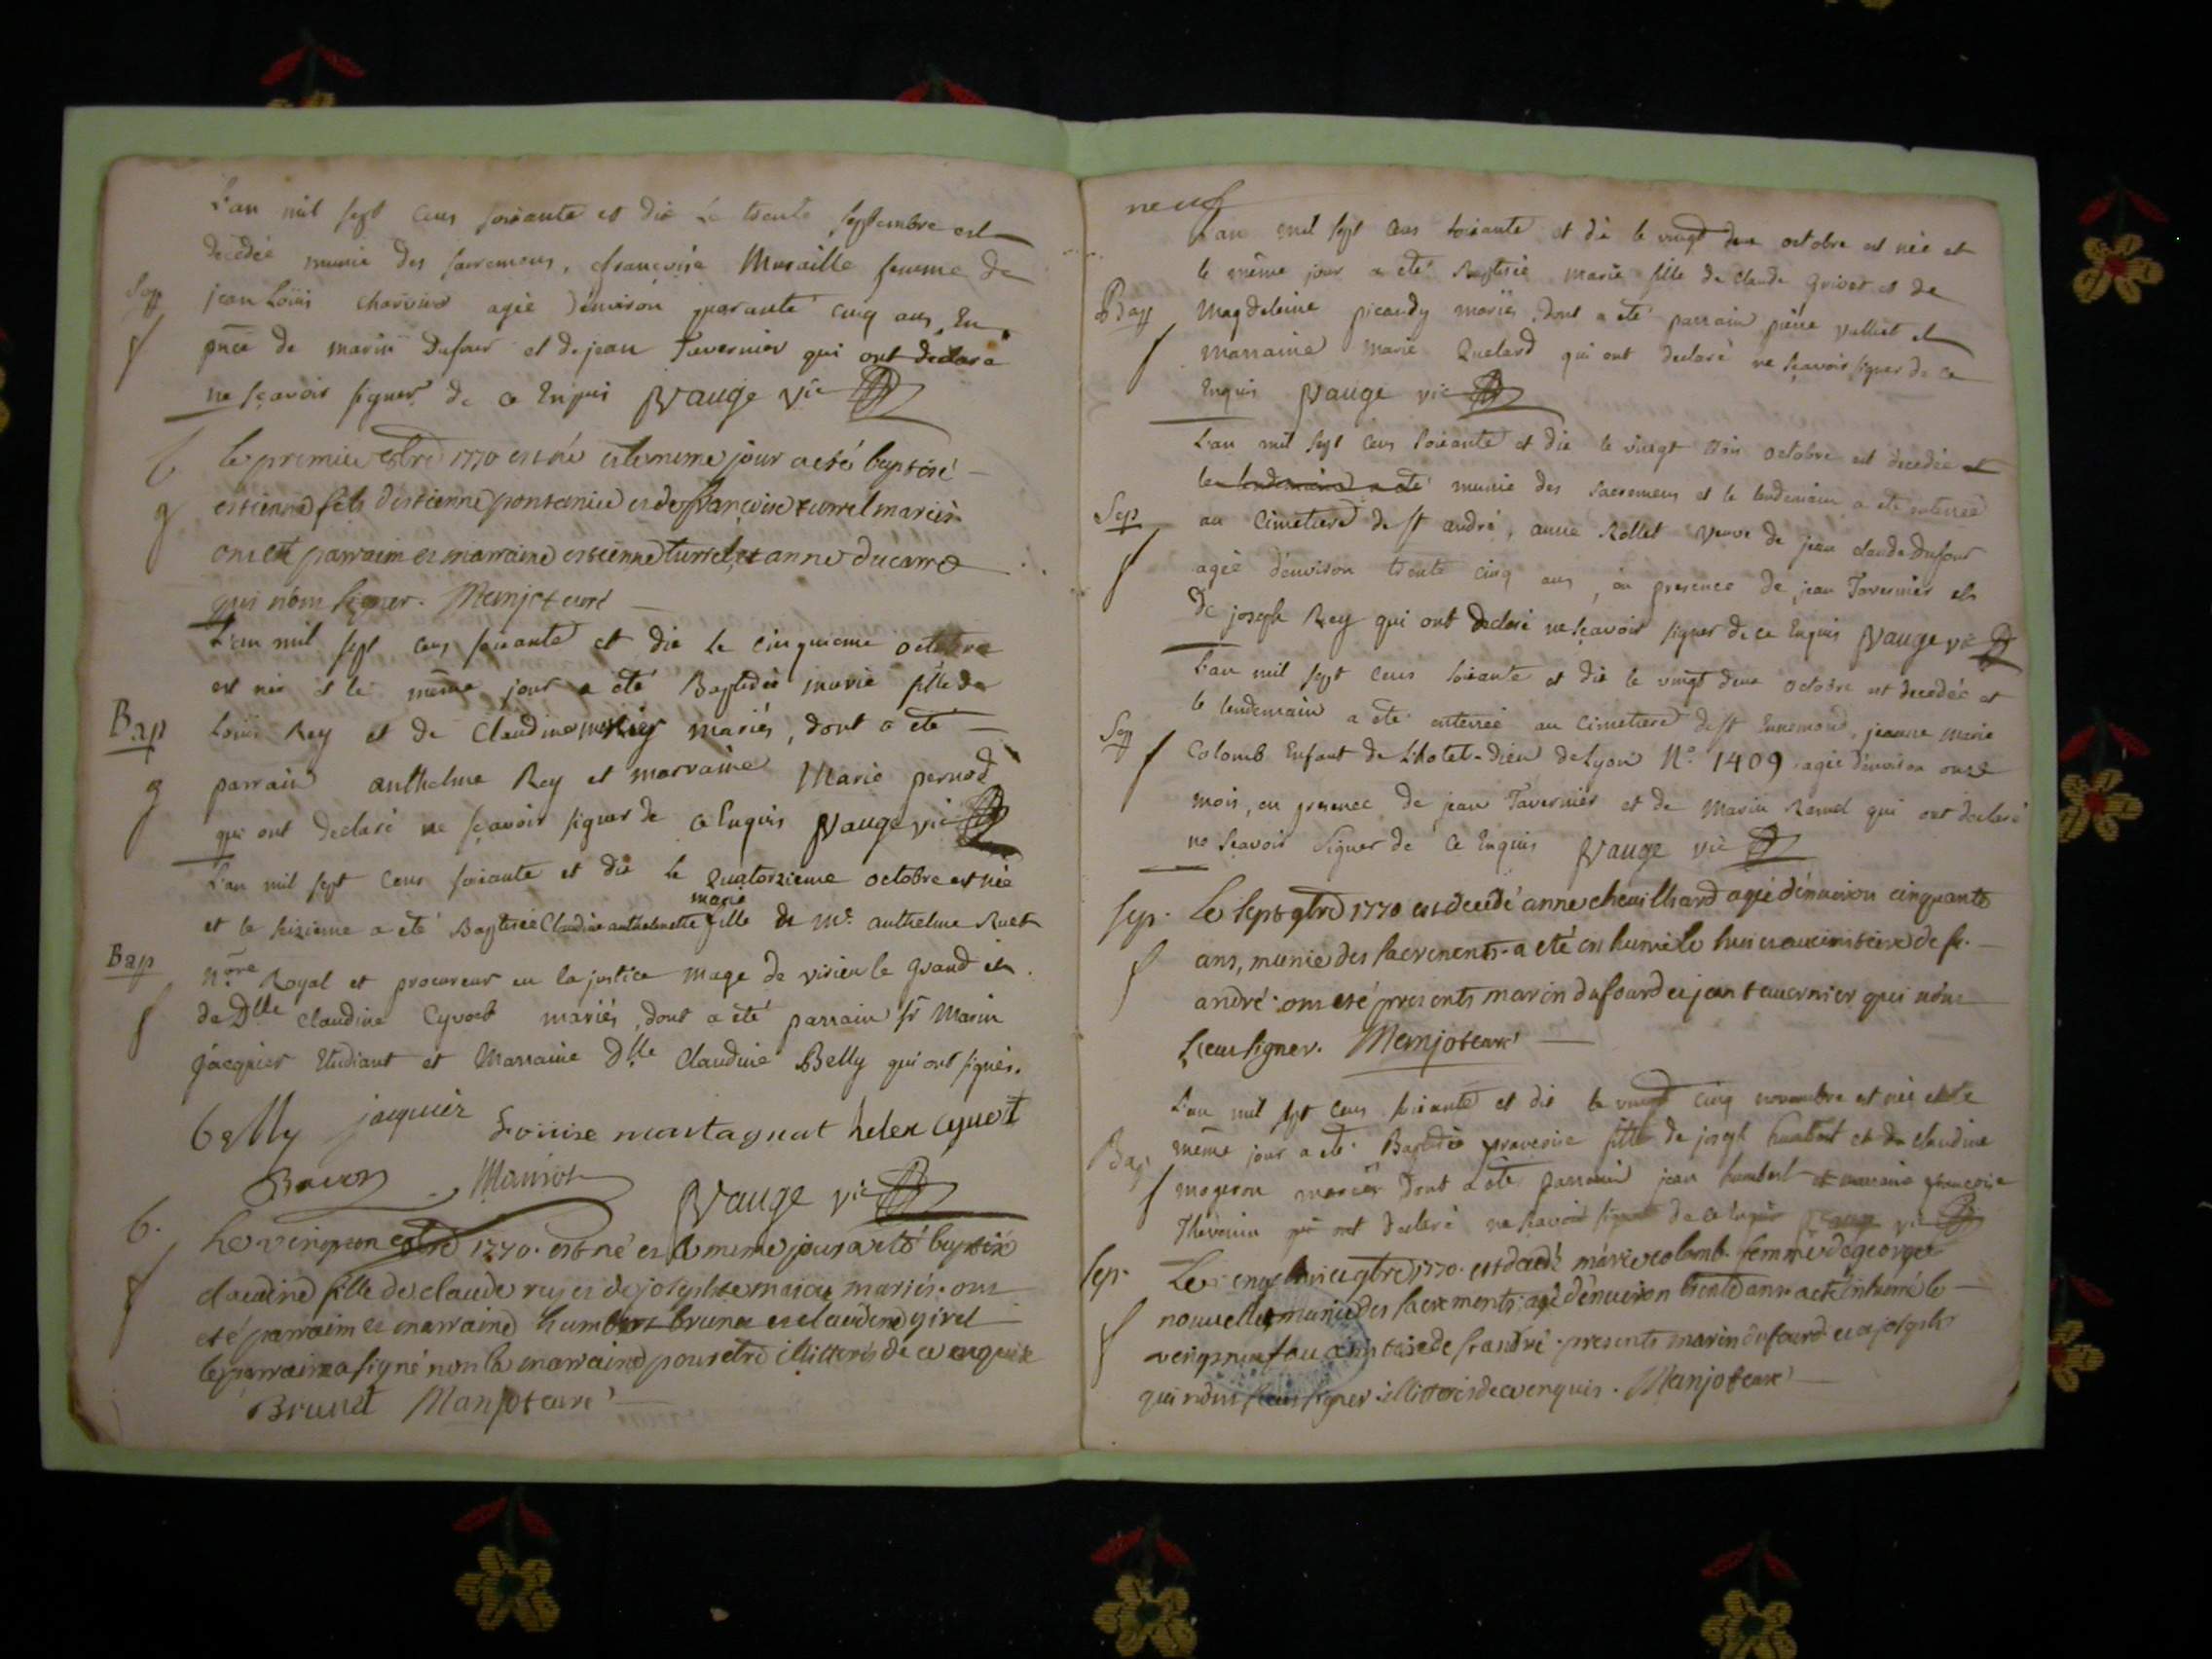 L'an mil sept cens soixante et dix Le trente septembre est
decedée munie des sacremens, françoise Muraille femme de
Sep
jean Loüis charvin agée d'environ quarante cinq ans, En
f
pnce de marin Dufour et de jean Tavernier qui ont declaré
ne sçavoir signer de ce Enquis Vauge vic
b
le premier 8bre 1770 est né et le meme jour a eté baptisé
g
estienne fils d'estienne pontanier et de françoise turrel mariés
ont eté parraim et marraine estienne turrel et anne ducarre
qui n'ont signer. Manjot curé
L'an mil sept cens soixante et dix Le cinquieme octobre
est née et le même jour a été Baptisée marie fille de
Bap
Loüis Rey et de Claudine mariés, dont a été
g
parrain anthelme Rey et marraine Marie pernod
qui ont declaré ne sçavoir signer de ce Enquis Vauge vic
L'an mil sept cens soixante et dix le quatorzieme octobre est née
marie
et le seizieme a été Baptisée Claudine anthelmette fille de Me. anthelme Ruet
Bap
Nore Royal et procureur en la justice mage de virieu le grand et
f
de Dlle Claudine Cyvoct mariés, dont a été parrain sr Marin
jacquier Etudiant et Marraine Dlle Claudine Belly qui ont signés.
belly jaquier Loüise montagnat helen cyvoct
Manjot
Vauge vic
b.
Le vingt un 8bre 1770. est né et le meme jour a eté baptisé
f
claudine fille de claude rey et de josephte mariés. ont
eté parraim et marraine humbert brunet et claudine girel
le parraim a signé non la marraine pour etre illitterés de ce enquise
Brunet Manjot curé
neuf
L'an mil sept cens soixante et dix le vingt deux octobre est née et
le même jour a été Baptisée marie fille de Claude Grivet et de
Bap
Magdeleine picardy mariés, dont a été parrain pierre valliet et
f
marraine Marie Quelard qui ont declaré ne sçavoir signer de ce
Enquis Vauge vic
L'an mil sept cens soixante et dix le vingt trois octobre est decedée et
le lendemain a eté munie des sacremens et le lendemain a été enterrée
Sep
au Cimetiere de st andré, anne Rollet veuve de jean claude Dufour
f
agée d'environ trente cinq ans, en presence de jean Tavernier et
de joseph Rey qui ont declaré ne sçavoir signer de ce Enquis Vauge vic
L'an mil sept cens soixante et dix le vingt deux octobre est decedée et
le lendemain a eté enterrée au cimetiere de st Ennemond, jeanne marie
Sep
f
Colomb Enfant de L'hotel-dieu de Lyon N.° 1409 agée d'environ onze
mois, en presence de jean Tavernier et de Marin qui ont declaré
ne sçavoir signer de ce Enquis Vauge vic
sep.
Le sept 9bre 1770 est decedé anne cheuilliard agée d'enuiron cinquante
f
ans, munie des sacrements. a eté enhumé le huit au cimitiere de st.
andré. ont eté presents marin dufourd et jean tauernier qui n'ont
sceu signer. Manjot curé
L'an mil sept cens soixante et dix le vingt cinq novembre est née et le
Bap
même jour a eté Baptisée françoise fille de joseph humbert et de claudine
f
mogeron mariés dont a été parrain jean humbert et marraine françoise
Thevenin qui ont declaré ne sçavoir signer de ce Enquis Vauge vic
sep.
Le vingt huit 9bre 1770. est decedé marie colomb. femme de george
f
nouuelle munie des sacrements. agé d'enuiron trente ans. a eté inhumé le
vingt neuf au cimitiere de st andré. presents marin dufourd et joseph
qui n'ont sceu signer illitterés de ce enquis. Manjot curé